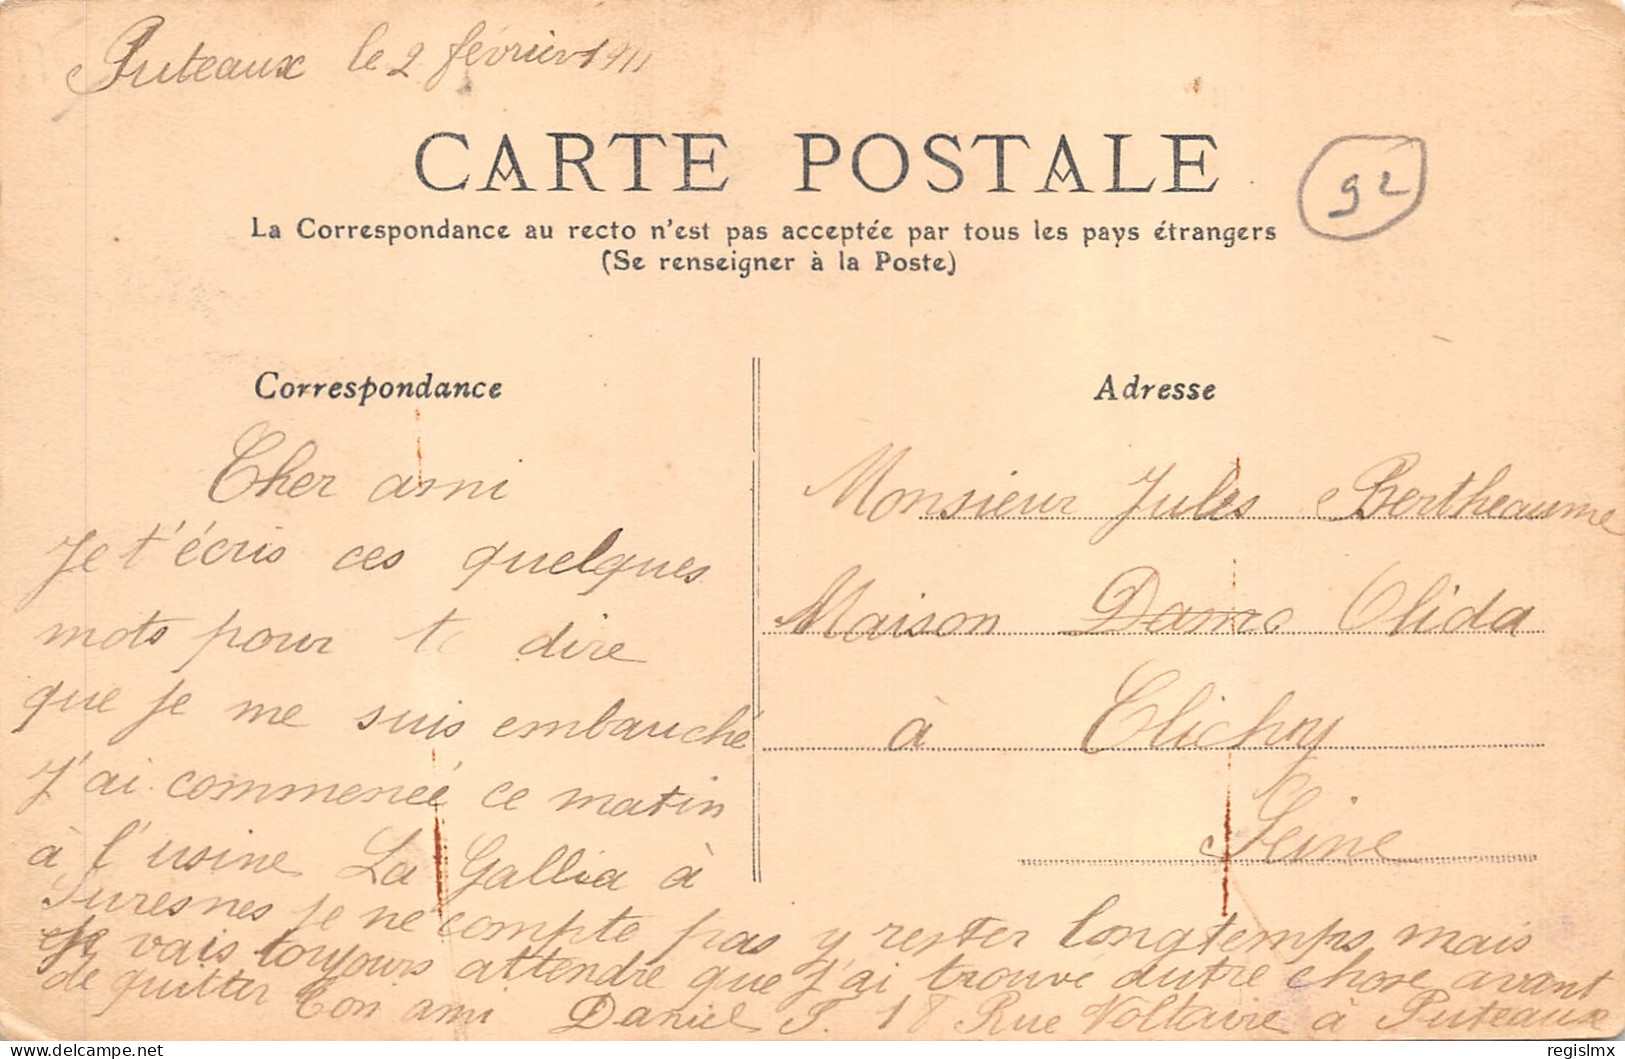 Puteaux le 2 février 1911
CARTE POSTALE
92
La Correspondance au recto n'est pas acceptée par tous les pays étrangers
(Se renseigner à la Poste)
Correspondance
Cher ami
Je t'écris ces quelques
mots pour te dire
que je me suis embauché
J'ai commencé ce matin
à l'usine La Gallia à
Suresnes je ne compte pas y rester longtemps mais
je vais toujours attendre que j'ai trouvé autre chose avant
de quitter Ton ami Daniel F. 18 Rue Voltaire à Puteaux
Adresse
Monsieur Jules Bertheaume
Maison Olida
à Clichy
Seine
delcampe.net
regislmx